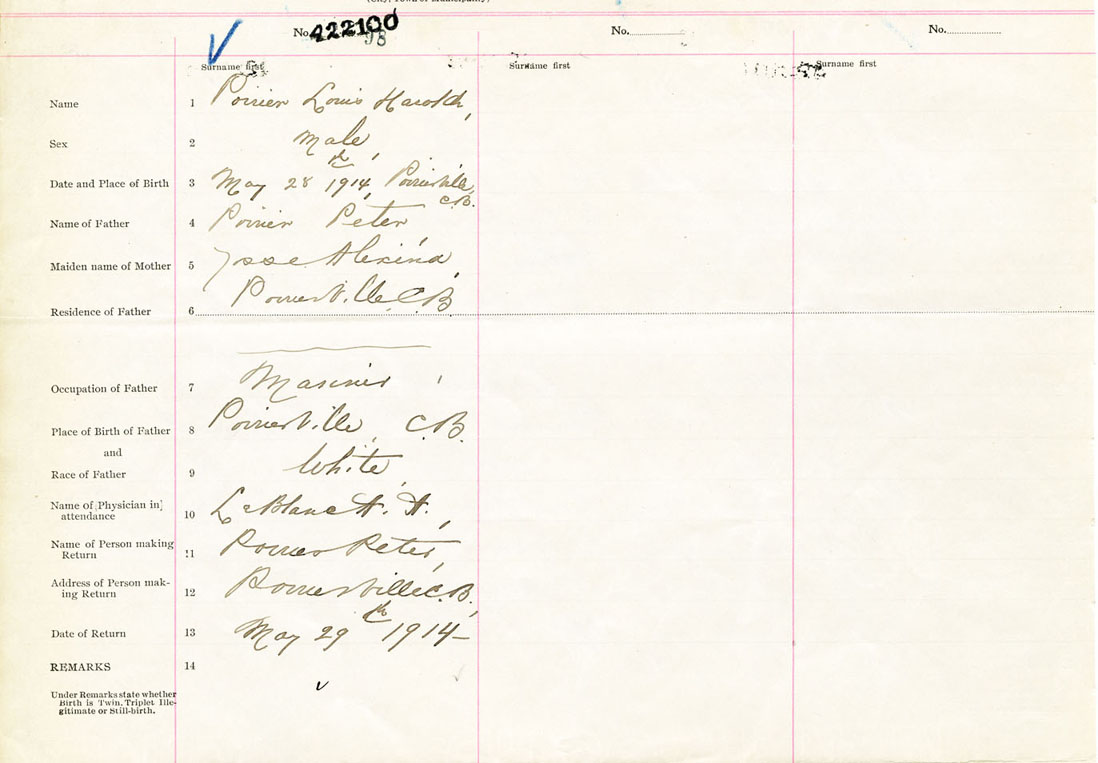 (City, Town or Municipality)
No. 422100
98
No.
No.
Surname first
Surname first
Surname first
Name 1 Poirier Louis Harold,
Sex 2 Male,
Date and Place of Birth 3 May 28th 1914, Poirierville, C.B.
Name of Father 4 Poirier Peter,
Maiden name of Mother 5 Josse Alexina,
Residence of Father 6 Poirierville, C.B
Occupation of Father 7 Mariner,
Place of Birth of Father 8 Poirierville, C.B.
and
Race of Father 9 White,
Name of [Physician in] attendance 10 LeBlanc A. A.,
Name of Person making Return 11 Poirier Peter,
Address of Person mak-
ing Return 12 Poirierville C.B,
Date of Return 13 May 29th 1914–
REMARKS 14
Under Remarks state whether
Birth is Twin, Triplet Ille-
gitimate or Still-birth.